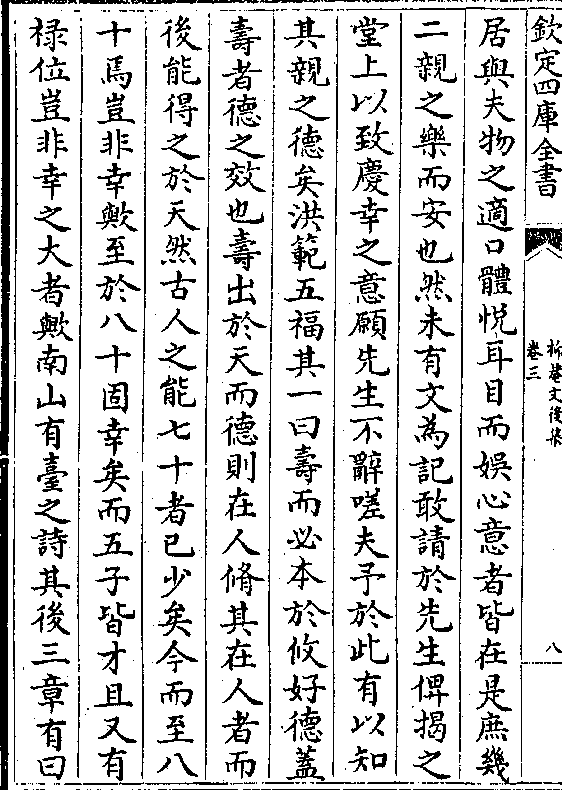 欽定四庫全書
卷三
八
居與夫物之適口體悅耳目而娛心意者皆在是庶幾
二親之樂而安也然未有文為記敢請於先生俾揭之
堂上以致慶幸之意願先生不辭嗟夫予於此有以知
其親之德矣洪範五福其一曰壽而必本於攸好德蓋
壽者德之效也壽出於天而德則在人脩其在人者而
後能得之於天然古人之能七十者已少矣今而至八
十焉豈非幸歟至於八十固幸矣而五子皆才且又有
祿位豈非幸之大者歟南山有臺之詩其後三章有曰